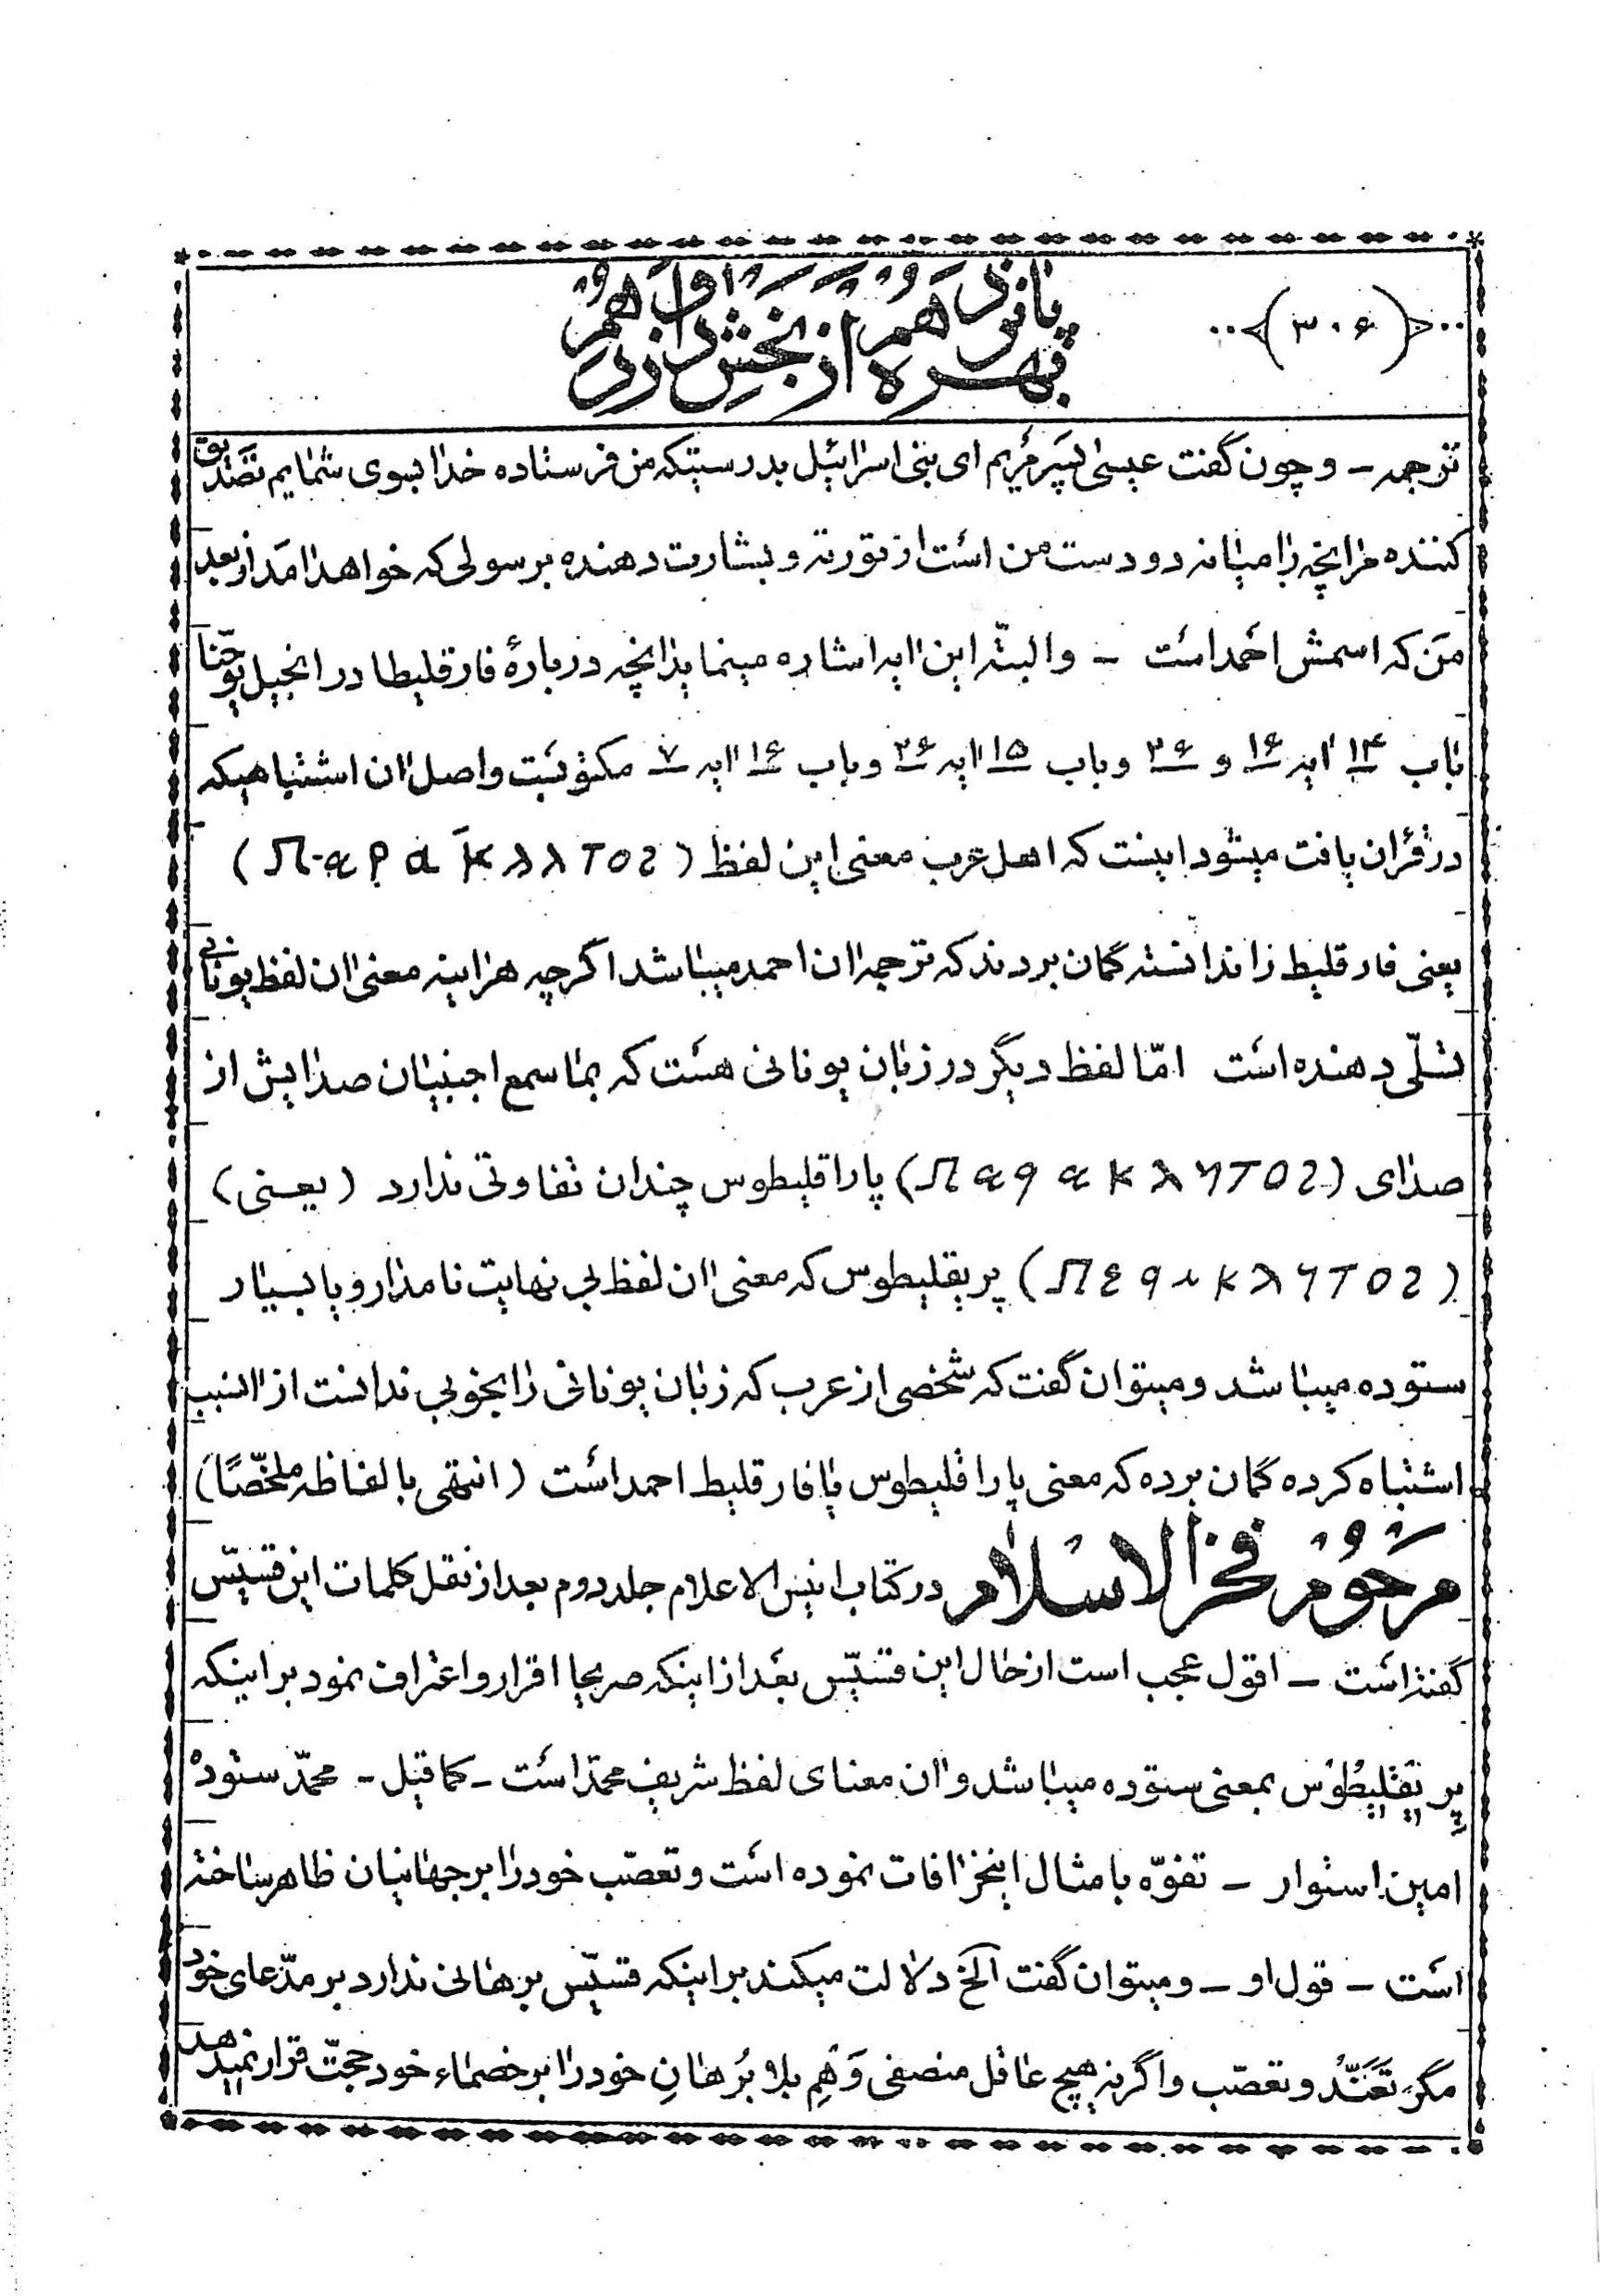 ﴿۳۰۶﴾
پانزدهم اول هم
بهره از بخش دوازدهم
ترجمه ـ و چون گفت عیسی پسر مریم ای بنی اسرائیل بدرستیکه من فرستاده خدا بسوی شمایم تصدیق
کننده مرانچه را میانه دو دست من است از تورته و بشارت دهنده برسولی که خواهد امد از بعد
من که اسمش احمد است ـ و البته این ایه اشاره مینماید بانچه در بارهٔ فارقلیطا در انجیل یوحنّا
باب ۱۴ ایه ۱۶ و ۲۶ و باب ۱۵ ایه ۲۶ و باب ۱۶ ایه ۷ مکتوبست و اصل ان اشتباهیکه
در قران یافت میشود اینست که اهل عرب معنی این لفظ (Παρακλλτος)
یعنی فارقلیط را ندانسته گمان بردند که ترجمه ان احمد میباشد اگرچه هراینه معنی ان لفظ یونانی
تسلّی دهنده است امّا لفظ دیگر در زبان یونانی هست که بمسامع اجنبیان صدایش از
صدای (Παρακλητος) پاراقلیطوس چندان تفاوتی ندارد (یعنی)
(Περικλητος) پریقلیطوس که معنی ان لفظ بی نهایت نامدار و یا بسیار
ستوده میباشد و میتوان گفت که شخصی از عرب که زبان یونانی را بخوبی ندانست از انسبب
اشتباه کرده گمان برده که معنی پاراقلیطوس یا فارقلیط احمد است (انتهی بالفاظه ملخّصًا)
مرحوم فخر الاسلام در کتاب انیس الاعلام جلد دوم بعد از نقل کلمات این قسّیس
گفته است ـ اقول عجب است از حال این قسّیس بعد از اینکه صریحا اقرار و اعتراف نمود بر اینکه
پِریقلیطوس بمعنی ستوده میباشد و ان معنای لفظ شریف محمّد است ـ کما قیل ـ محمّد ستودهٔ
امین استوار ـ تفوّه بامثال اینخرافات نموده است و تعصّب خود را بر جهانیان ظاهر ساخته
است ـ قول او ـ و میتوان گفت الخ دلالت میکند بر اینکه قسّیس برهانی ندارد بر مدّعای خود
مگر تعنّد و تعصّب و اگرنه هیچ عاقل منصفی وَهمِ بلا بُرهانِ خود را بر خصماء خود حجّت قرار نمیدهد